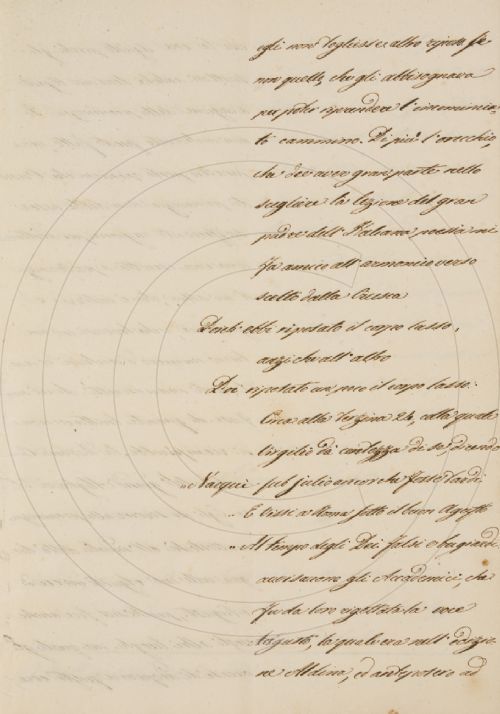 egli non togliesse altro riposo se
non quello, che gli abbisognava
per poter riprender l'incomincia-
to cammino. Di più l'orecchio,
che dee aver gran parte nello
scegliere la lezione del gran
padre dell'Italiana poesia mi
fa amico all'armonico verso
scelto dalla Crusca
Poich' ebbi riposato il corpo lasso,
anzi che all'altro
Poi riposato un poco il corpo lasso.
Circa alla terzina 24, colla quale
Virgilio dà contezza di se, dicendo
„ Nacqui sub julio ancorche fosse tardi
„ E vissi a Roma sotto il buon Agusto
„ Al tempo degli Dei falsi e bugiardi
avvisarono gli Accademici, che
fu da loro rigettata la voce
Augusto, la quale era nell'edizio-
ne Aldina, ed anteposero ad